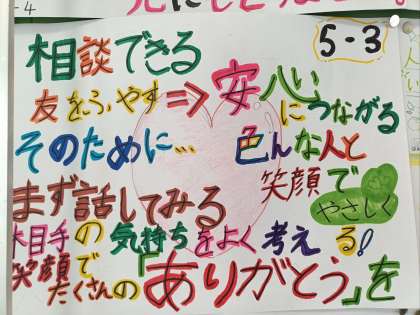 5-3
相談できる
友をふやす⇒安心につながる
そのために…
色んな人と
笑顔で
やさしく
まず話してみる
相手の気持ちをよく考える!
笑顔で
たくさんの「ありがとう」を